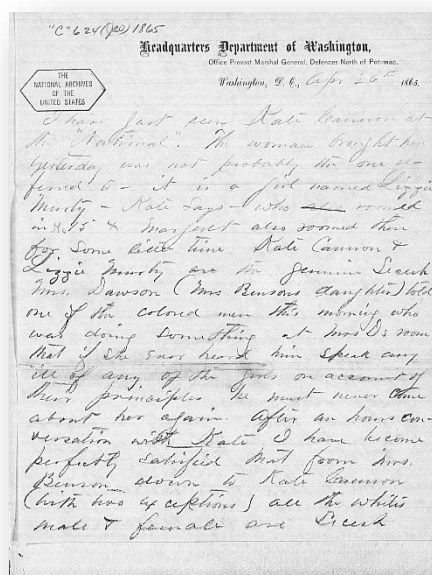 "C" 624 (JCO) 1865
Headquarters Department of Washington,
Office Provost Marshal General, Defences North of Potomac.
THE
NATIONAL ARCHIVES
OF THE
UNITED STATES
Washington, D. C., Apr 26th 1865.
I have just seen Kate Cannon at
the "National". The woman brought here
yesterday was not probably the one re-
ferred to - it is a girl named Lizzie
Murty - Kate says - who also roomed
in No 15 & Margaret also roomed there
for some little time Kate Cannon &
Lizzie Murty are the genuine Secesh
Mrs. Dawson (Mrs Bensons daughter) told
one of the colored men this morning who
was doing something at Mrs Ds room
that if she ever heard him speak any
ill of any of the girls on account of
their principles he must never come
about her again. After an hours con-
versation with Kate I have become
perfectly satisfied that from Mrs.
Benson down to Kate Cannon
(with two exceptions) all the whites
male & female are Secesh